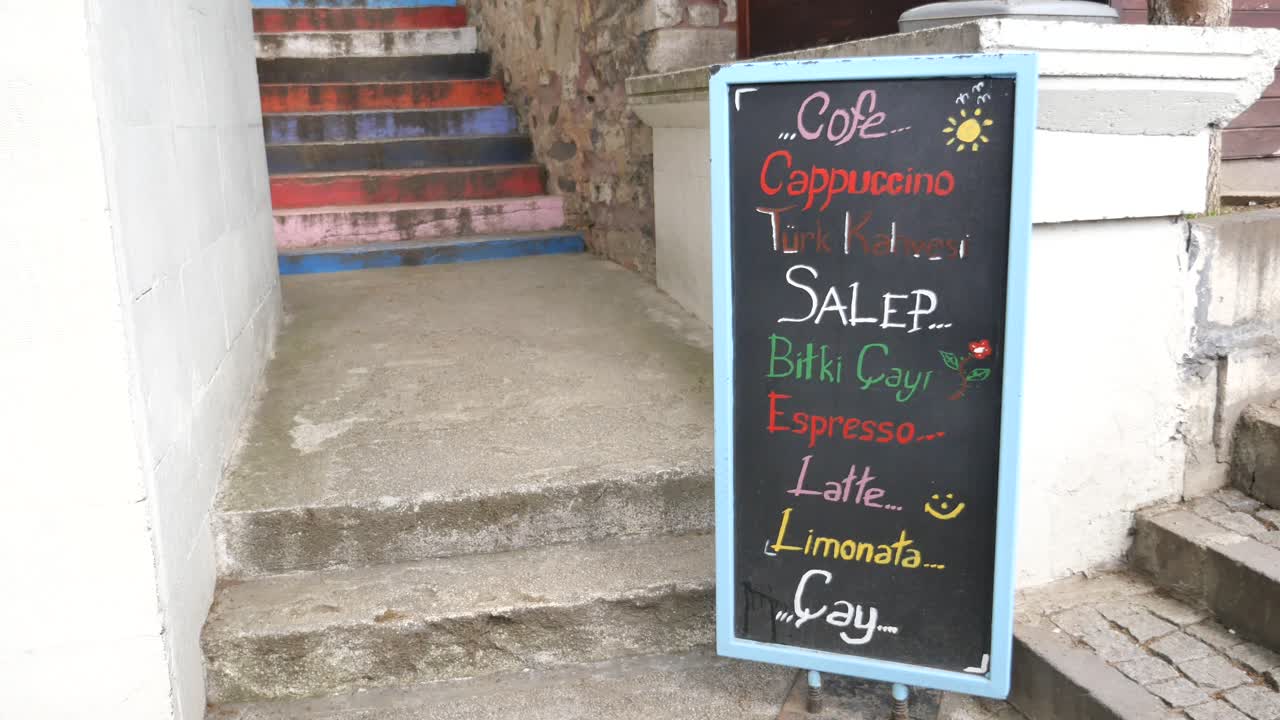 ...Cofe...
Cappuccino
Türk Kahvesi
SALEP...
Bitki Çayı
Espresso...
Latte...
Limonata...
...Çay....